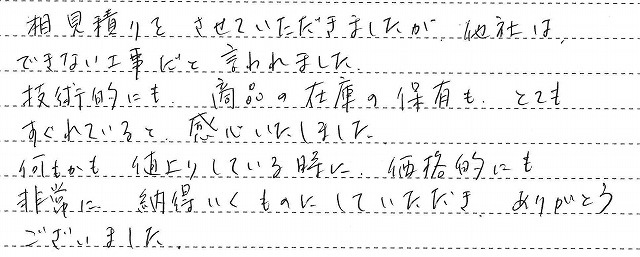 相見積りを させていただきましたが、他社は、
できない工事だと 言われました。
技術的にも、商品の在庫の保有も、とても
すぐれていると、感心いたしました。
何もかも 値上りしている時に、価格的にも
非常に 納得いくものにしていただき、ありがとう
ございました。